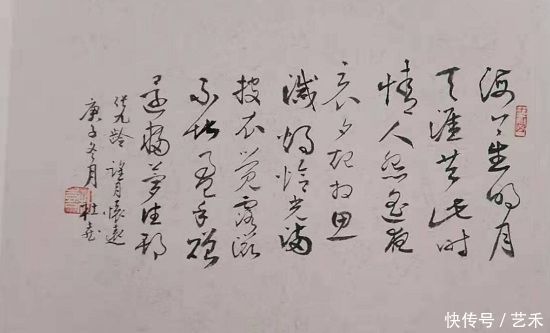 海上生明月
天涯共此时
情人怨遥夜
竟夕起相思
滅烛怜光满
披衣觉露滋
不堪盈手赠
还寝梦佳期
张九龄 望月懷遠
庚子冬月 杜
快传号／艺禾